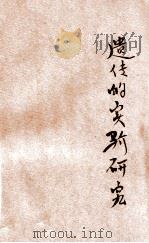 遗传的实验研究
mtoou.info